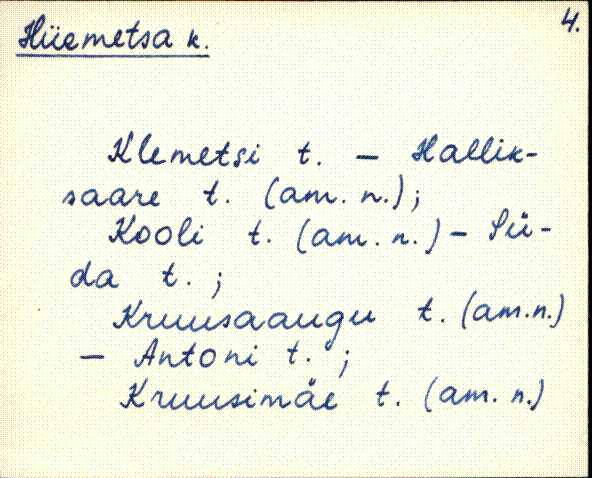 4.
Hüemetsa k.
Klemetsi t. — Hallik-
saare t. (am. n.);
Kooli t. (am. n.) — Sü-
da t. ;
Kruusaaugu t. (am.n.)
— Antoni t. ;
Kruusimäe t. (am. n.)